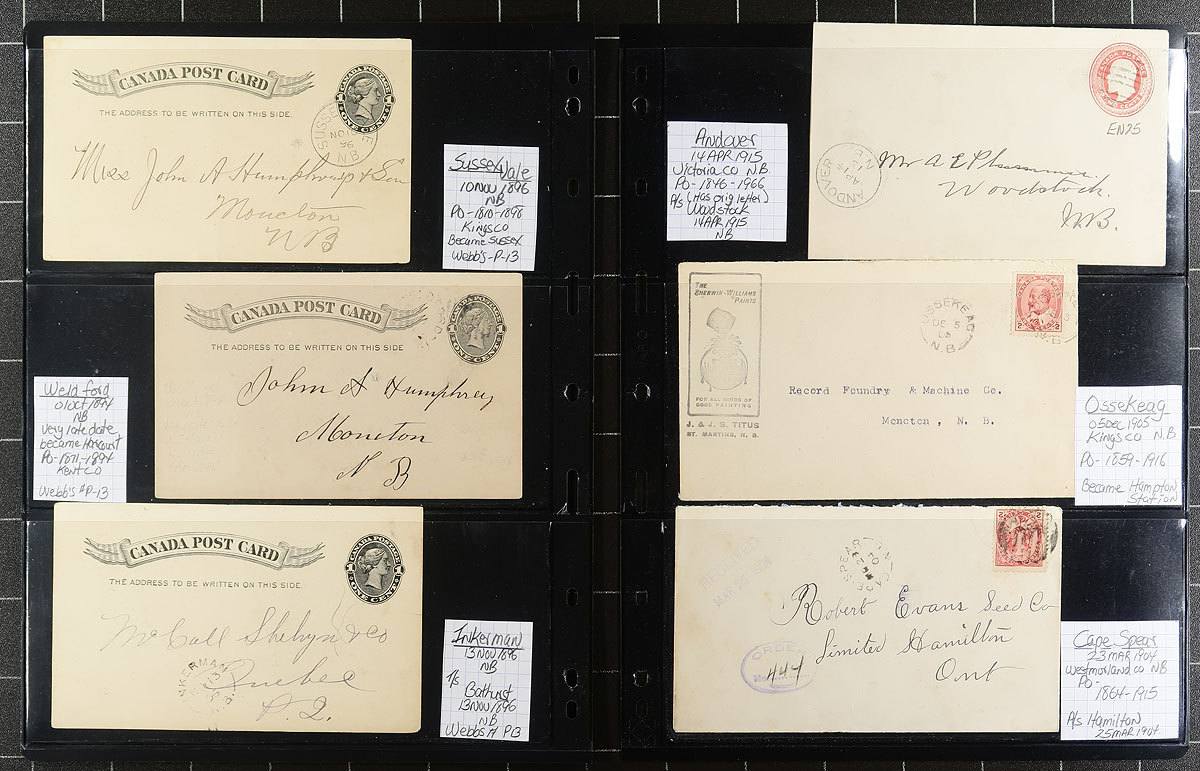 CANADA POST CARD
THE ADDRESS TO BE WRITTEN ON THIS SIDE.
ONE CENT
SUSSEX
NO 10
96
N B
Mess John A Humphrey & Son
Moncton
NB
Sussex Vale
10 NOV 1896
NB
PO-1810-1898
Kings Co
Became Sussex
Webb's-P-13
CANADA POST CARD
THE ADDRESS TO BE WRITTEN ON THIS SIDE
ONE CENT
John A Humphrey
Moncton
N B
Weldford
01 OCT 1894
NB
Very late date
became Harcourt
PO-1871-1894
Kent Co
Webb's #P-13
CANADA POST CARD
THE ADDRESS TO BE WRITTEN ON THIS SIDE.
ONE CENT
McCall Shehyn & Co
Quebec
P. Q.
INKERMAN
Inkerman
13 NOV 1896
NB
T/s
Bathurst
13 NOV 1896
NB
Webb's # P13
CANADA POSTAGE
EN25
ANDOVER
AP 14
15
Mr A E Plummer
Woodstock.
N.B.
Andover
14 APR 1915
Victoria Co N.B.
PO-1846-1966
A/s (Has orig letter)
Woodstock
14 APR 1915
NB
THE
SHERWIN-WILLIAMS
PAINTS
FOR ALL KINDS OF
GOOD PAINTING
J. & J. S. TITUS
ST. MARTINS, N. B.
OSSEKEAG
DE 5
05
N.B.
2 2
Record Foundry & Machine Co.
Moncton, N. B.
Ossekeag
05 DEC 1905
Kings Co N.B
PO-1859-1916
Became Hampton
Station
RECEIVED
CAPE SPEAR
2 2
Robert Evans Seed Co
Limited Hamilton
Ont
ORDER
444
Cape Spear
23 MAR 1904
Westmorland co NB
PO-
1864-1915
A/s Hamilton
25 MAR 1904